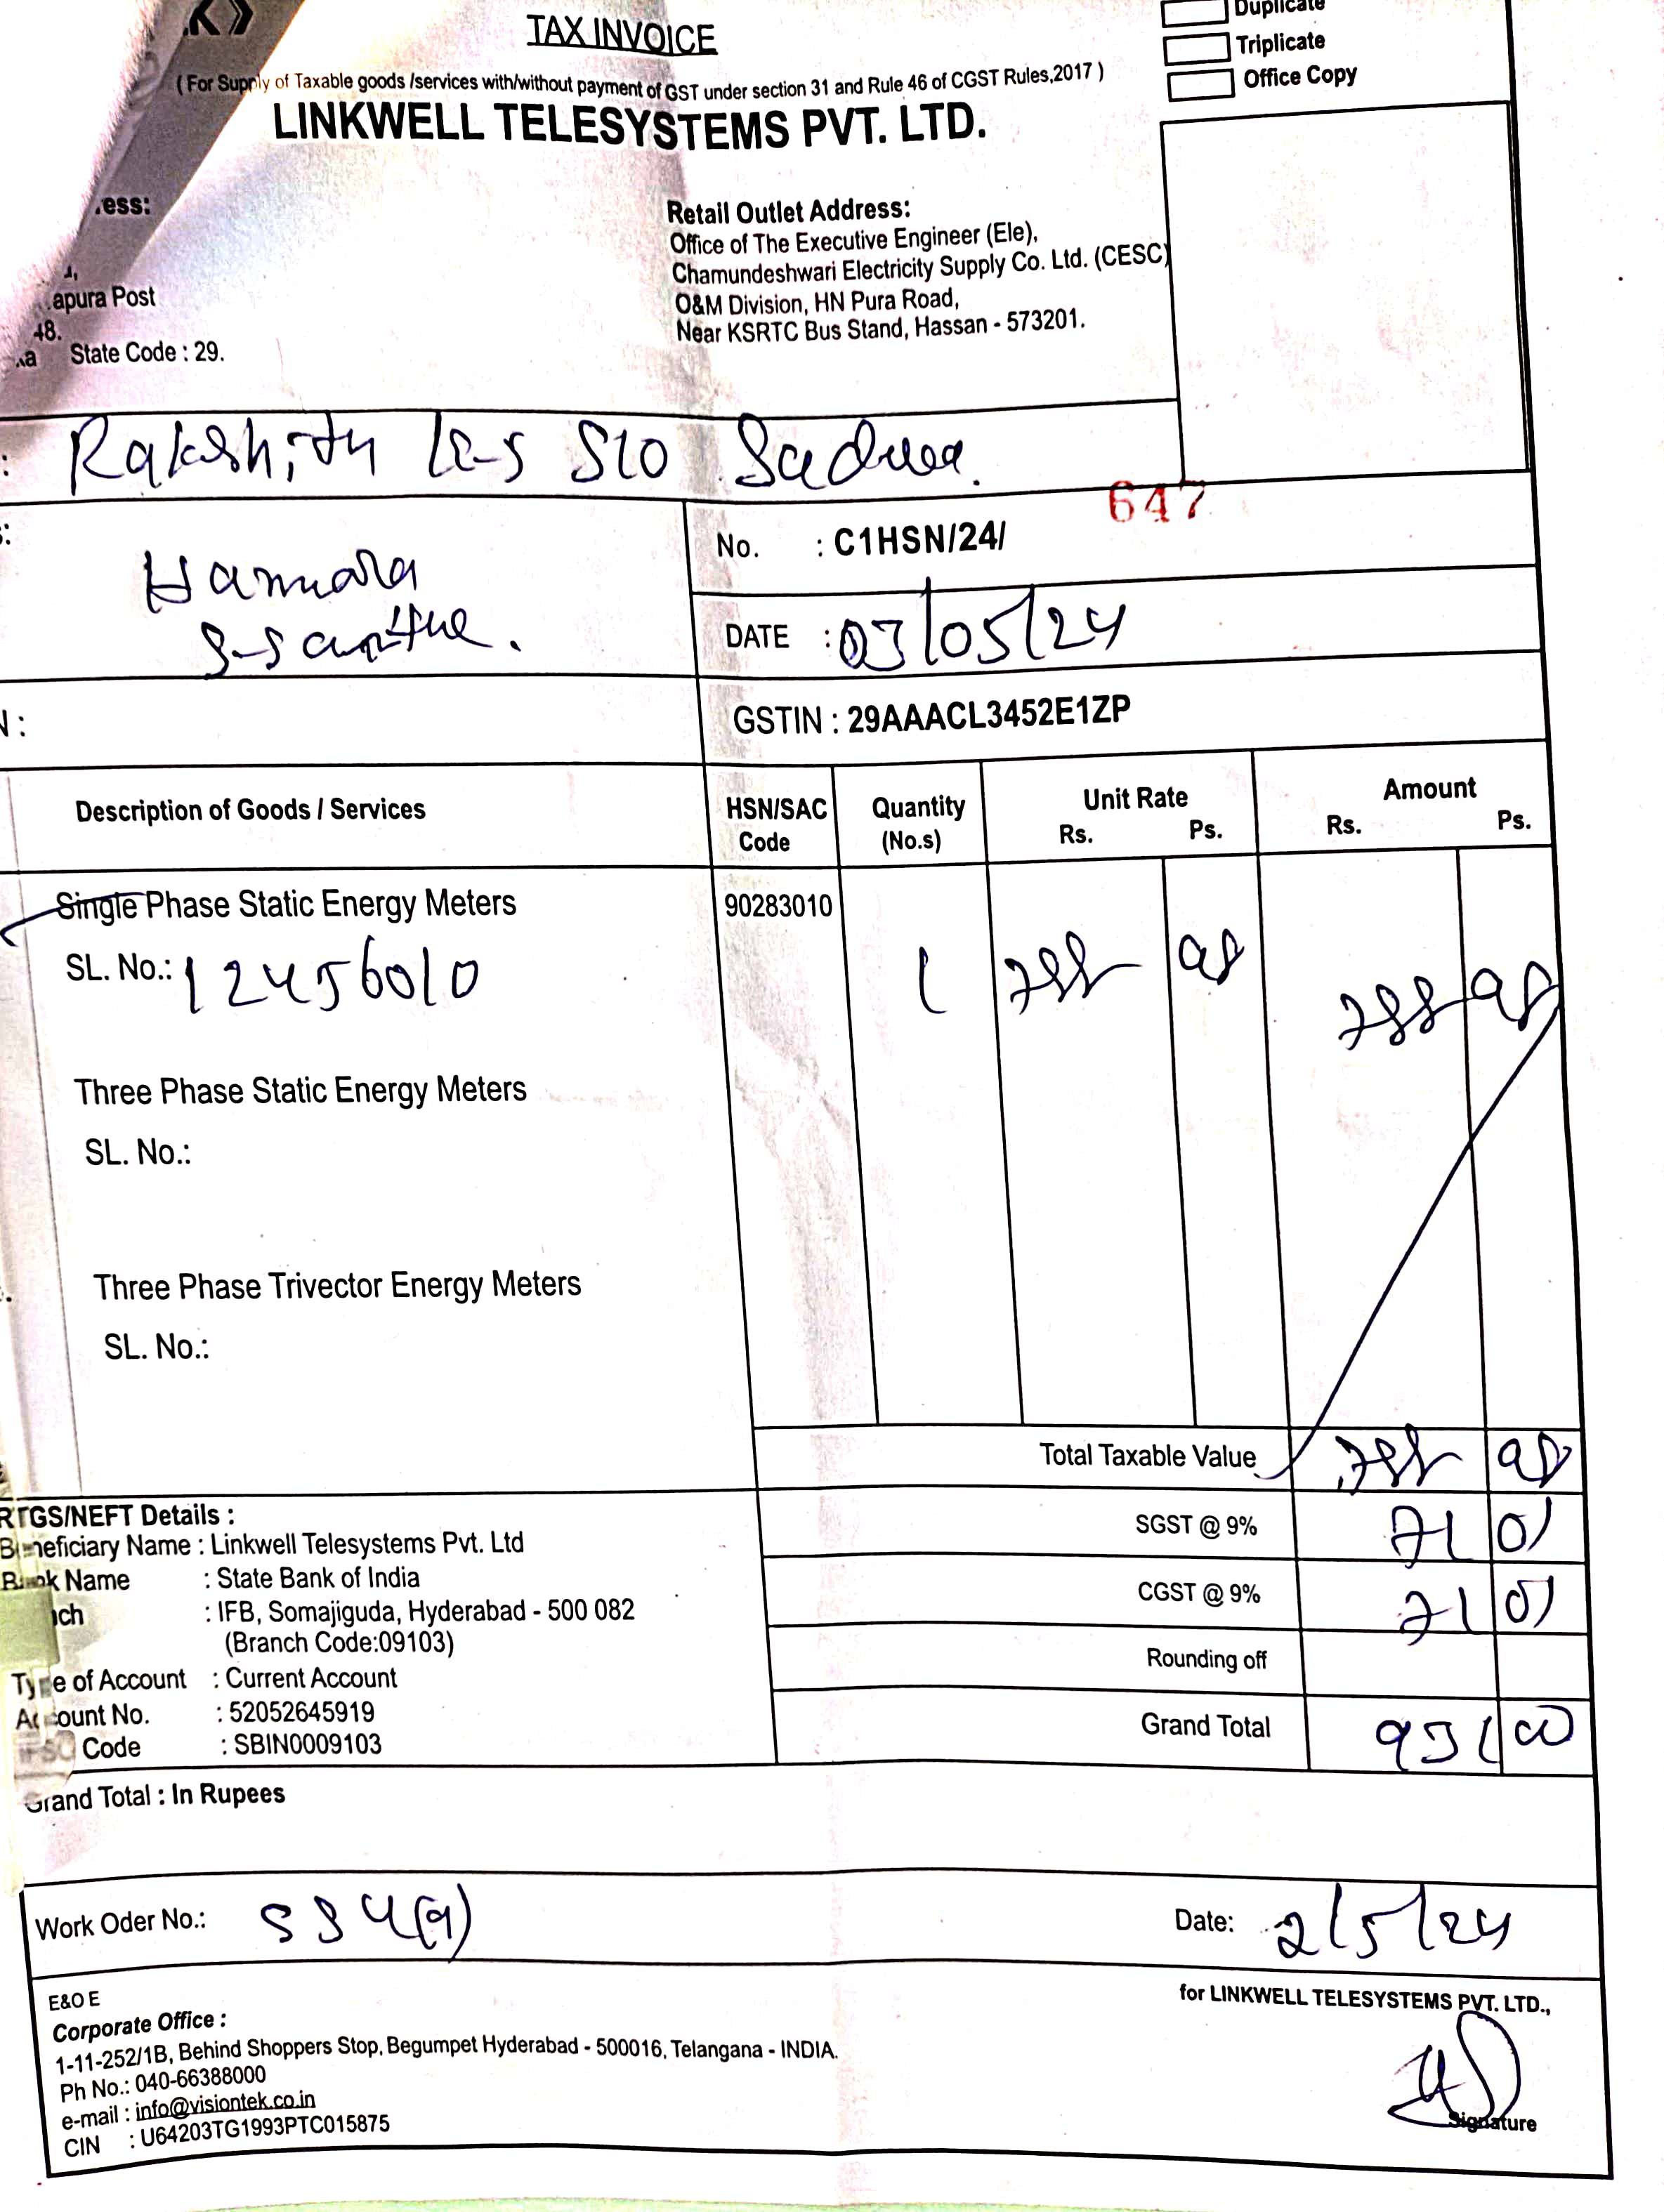 TAX INVOICE
Duplicate
Triplicate
Office Copy
( For Supply of Taxable goods /services with/without payment of GST under section 31 and Rule 46 of CGST Rules,2017 )
LINKWELL TELESYSTEMS PVT. LTD.
Retail Outlet Address:
Office of The Executive Engineer (Ele),
Chamundeshwari Electricity Supply Co. Ltd. (CESC)
O&M Division, HN Pura Road,
Near KSRTC Bus Stand, Hassan - 573201.
apura Post
48.
State Code : 29.
Rakshith S/o
647
No. : C1HSN/24/
DATE : 03/05/24
GSTIN : 29AAACL3452E1ZP
Description of Goods / Services
HSN/SAC Code
Quantity (No.s)
Unit Rate Rs. Ps.
Amount Rs. Ps.
Single Phase Static Energy Meters 90283010
SL. No.: 12456010 1 788 98 788 98
Three Phase Static Energy Meters
SL. No.:
Three Phase Trivector Energy Meters
SL. No.:
Total Taxable Value 788 98
SGST @ 9% 71 01
CGST @ 9% 71 01
Rounding off
Grand Total 931 00
RTGS/NEFT Details :
Beneficiary Name : Linkwell Telesystems Pvt. Ltd
Bank Name : State Bank of India
: IFB, Somajiguda, Hyderabad - 500 082
(Branch Code:09103)
Type of Account : Current Account
Account No. : 52052645919
Code : SBIN0009103
Grand Total : In Rupees
Work Oder No.: Date: 2/5/24
E&O E
for LINKWELL TELESYSTEMS PVT. LTD.,
Corporate Office :
1-11-252/1B, Behind Shoppers Stop, Begumpet Hyderabad - 500016, Telangana - INDIA.
Ph No.: 040-66388000
e-mail : info@visiontek.co.in
CIN : U64203TG1993PTC015875
Signature